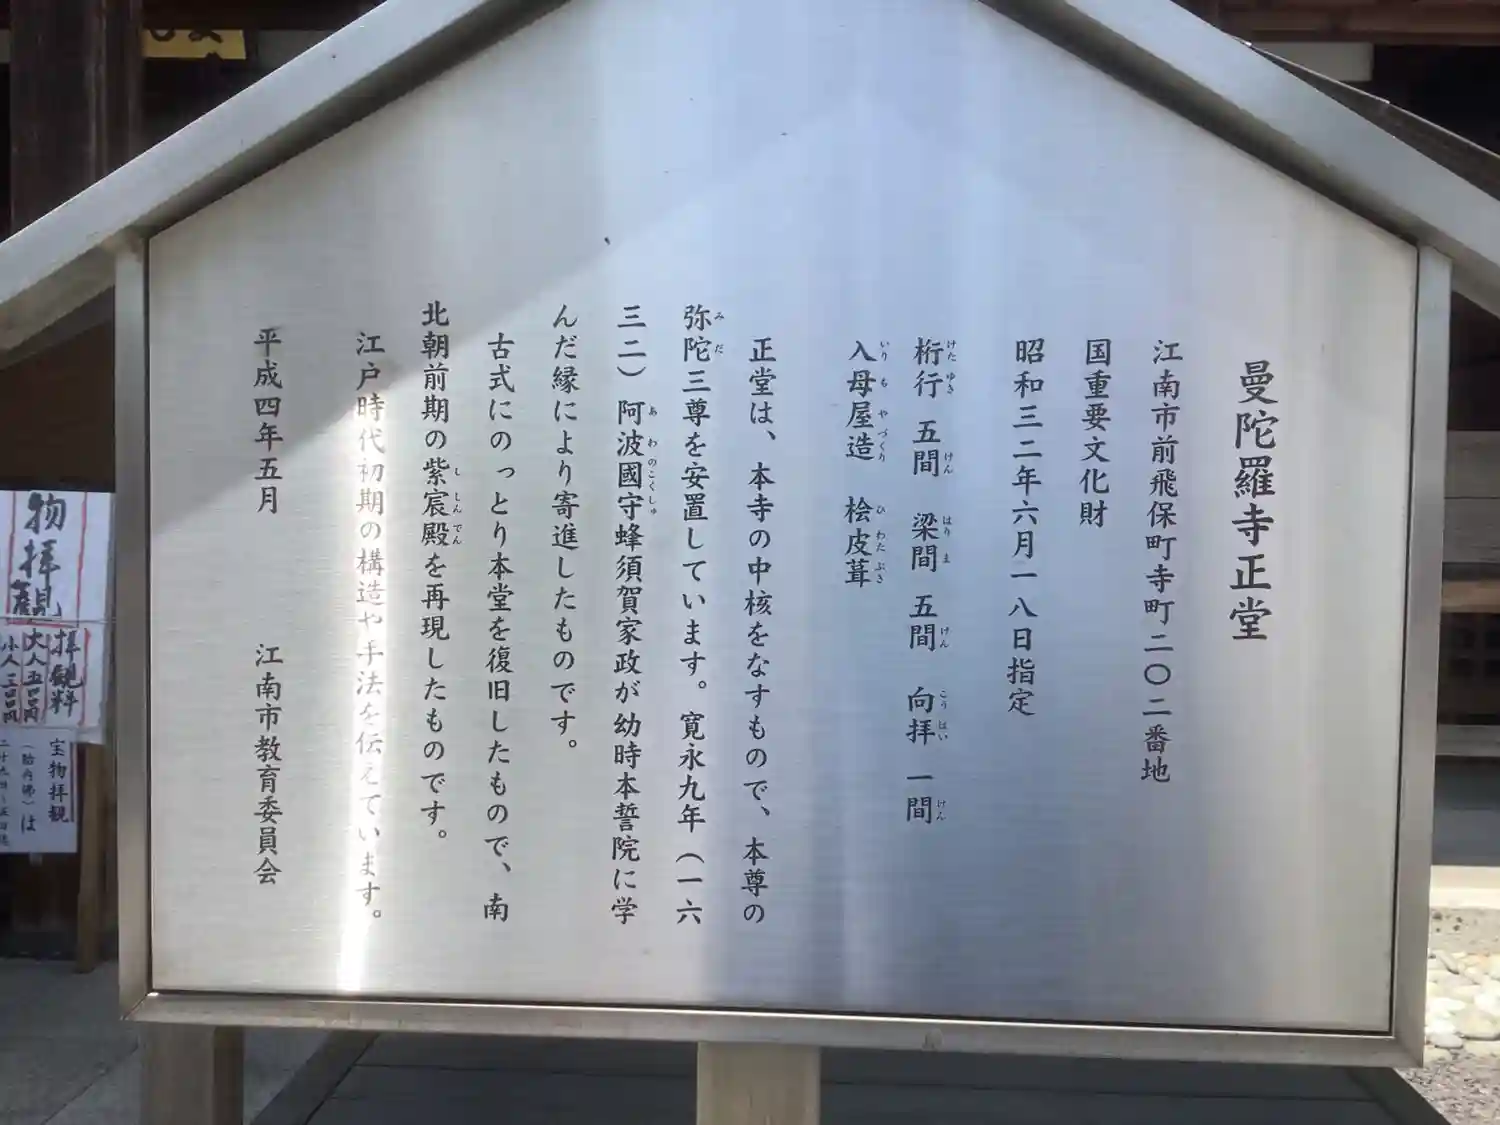 曼陀羅寺正堂
江南市前飛保町寺町二〇二番地
国重要文化財
昭和三二年六月一八日指定
桁行 五間 梁間 五間 向拝 一間
けたゆき けん はりま けん こうはい けん
入母屋造 桧皮葺
いりもやづくり ひわたぶき
正堂は、本寺の中核をなすもので、本尊の
弥陀三尊を安置しています。寛永九年(一六
みだ
三二)阿波國守蜂須賀家政が幼時本誓院に学
あわのこくしゅ
んだ縁により寄進したものです。
古式にのっとり本堂を復旧したもので、南
北朝前期の紫宸殿を再現したものです。
ししんでん
江戸時代初期の構造や手法を伝えています。
平成四年五月 江南市教育委員会
物拝観
拝観料
大人五百円
小人三百円
宝物拝観
(胎内佛)は